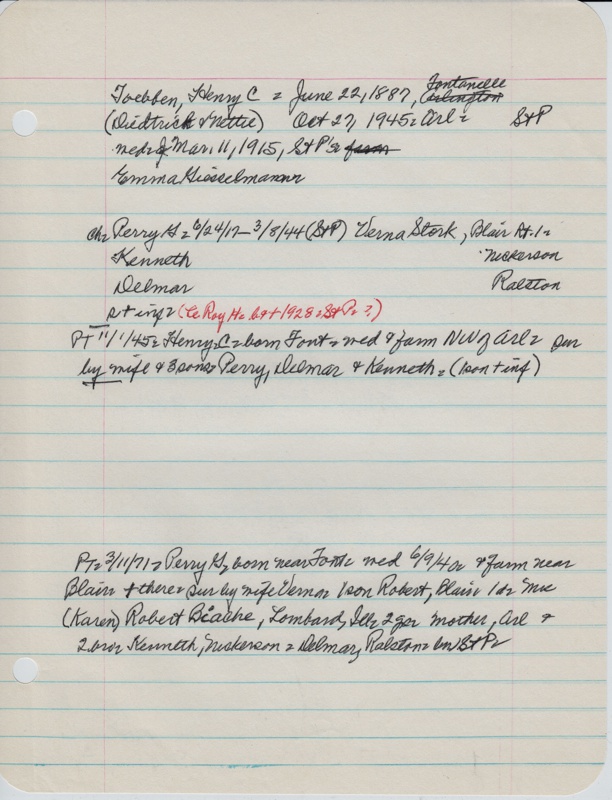 Toebben, Henry C = June 22, 1887, Fontanelle Arlington
(Diedtrich & Nettie) Oct 27, 1945 = Arl = St P
wed = Mar. 11, 1915, St P's farm
Emma Giesselmann
ch = Perry H = 6/24/17 - 3/8/44 (St P) Verna Stork, Blair Rt. 1 =
Kenneth Nickerson
Delmar Ralston
s + inf = (Le Roy H = bpt 1928 = St P = ?)
PT 11/1/45 = Henry C = born Font = wed & farm NW of Arl = sur
by wife & 3 sons = Perry, Delmar & Kenneth = (1 son + inf)
PT = 3/11/71 = Perry H, born near Font = wed 6/9/40 & farm near
Blair + there = sur by wife Verna 1 son Robert, Blair 1 d = Mrs
(Karen) Robert, Lombard, Ill = 2 gc = mother, Arl &
2 bro = Kenneth, Nickerson = Delmar, Ralston = St P =